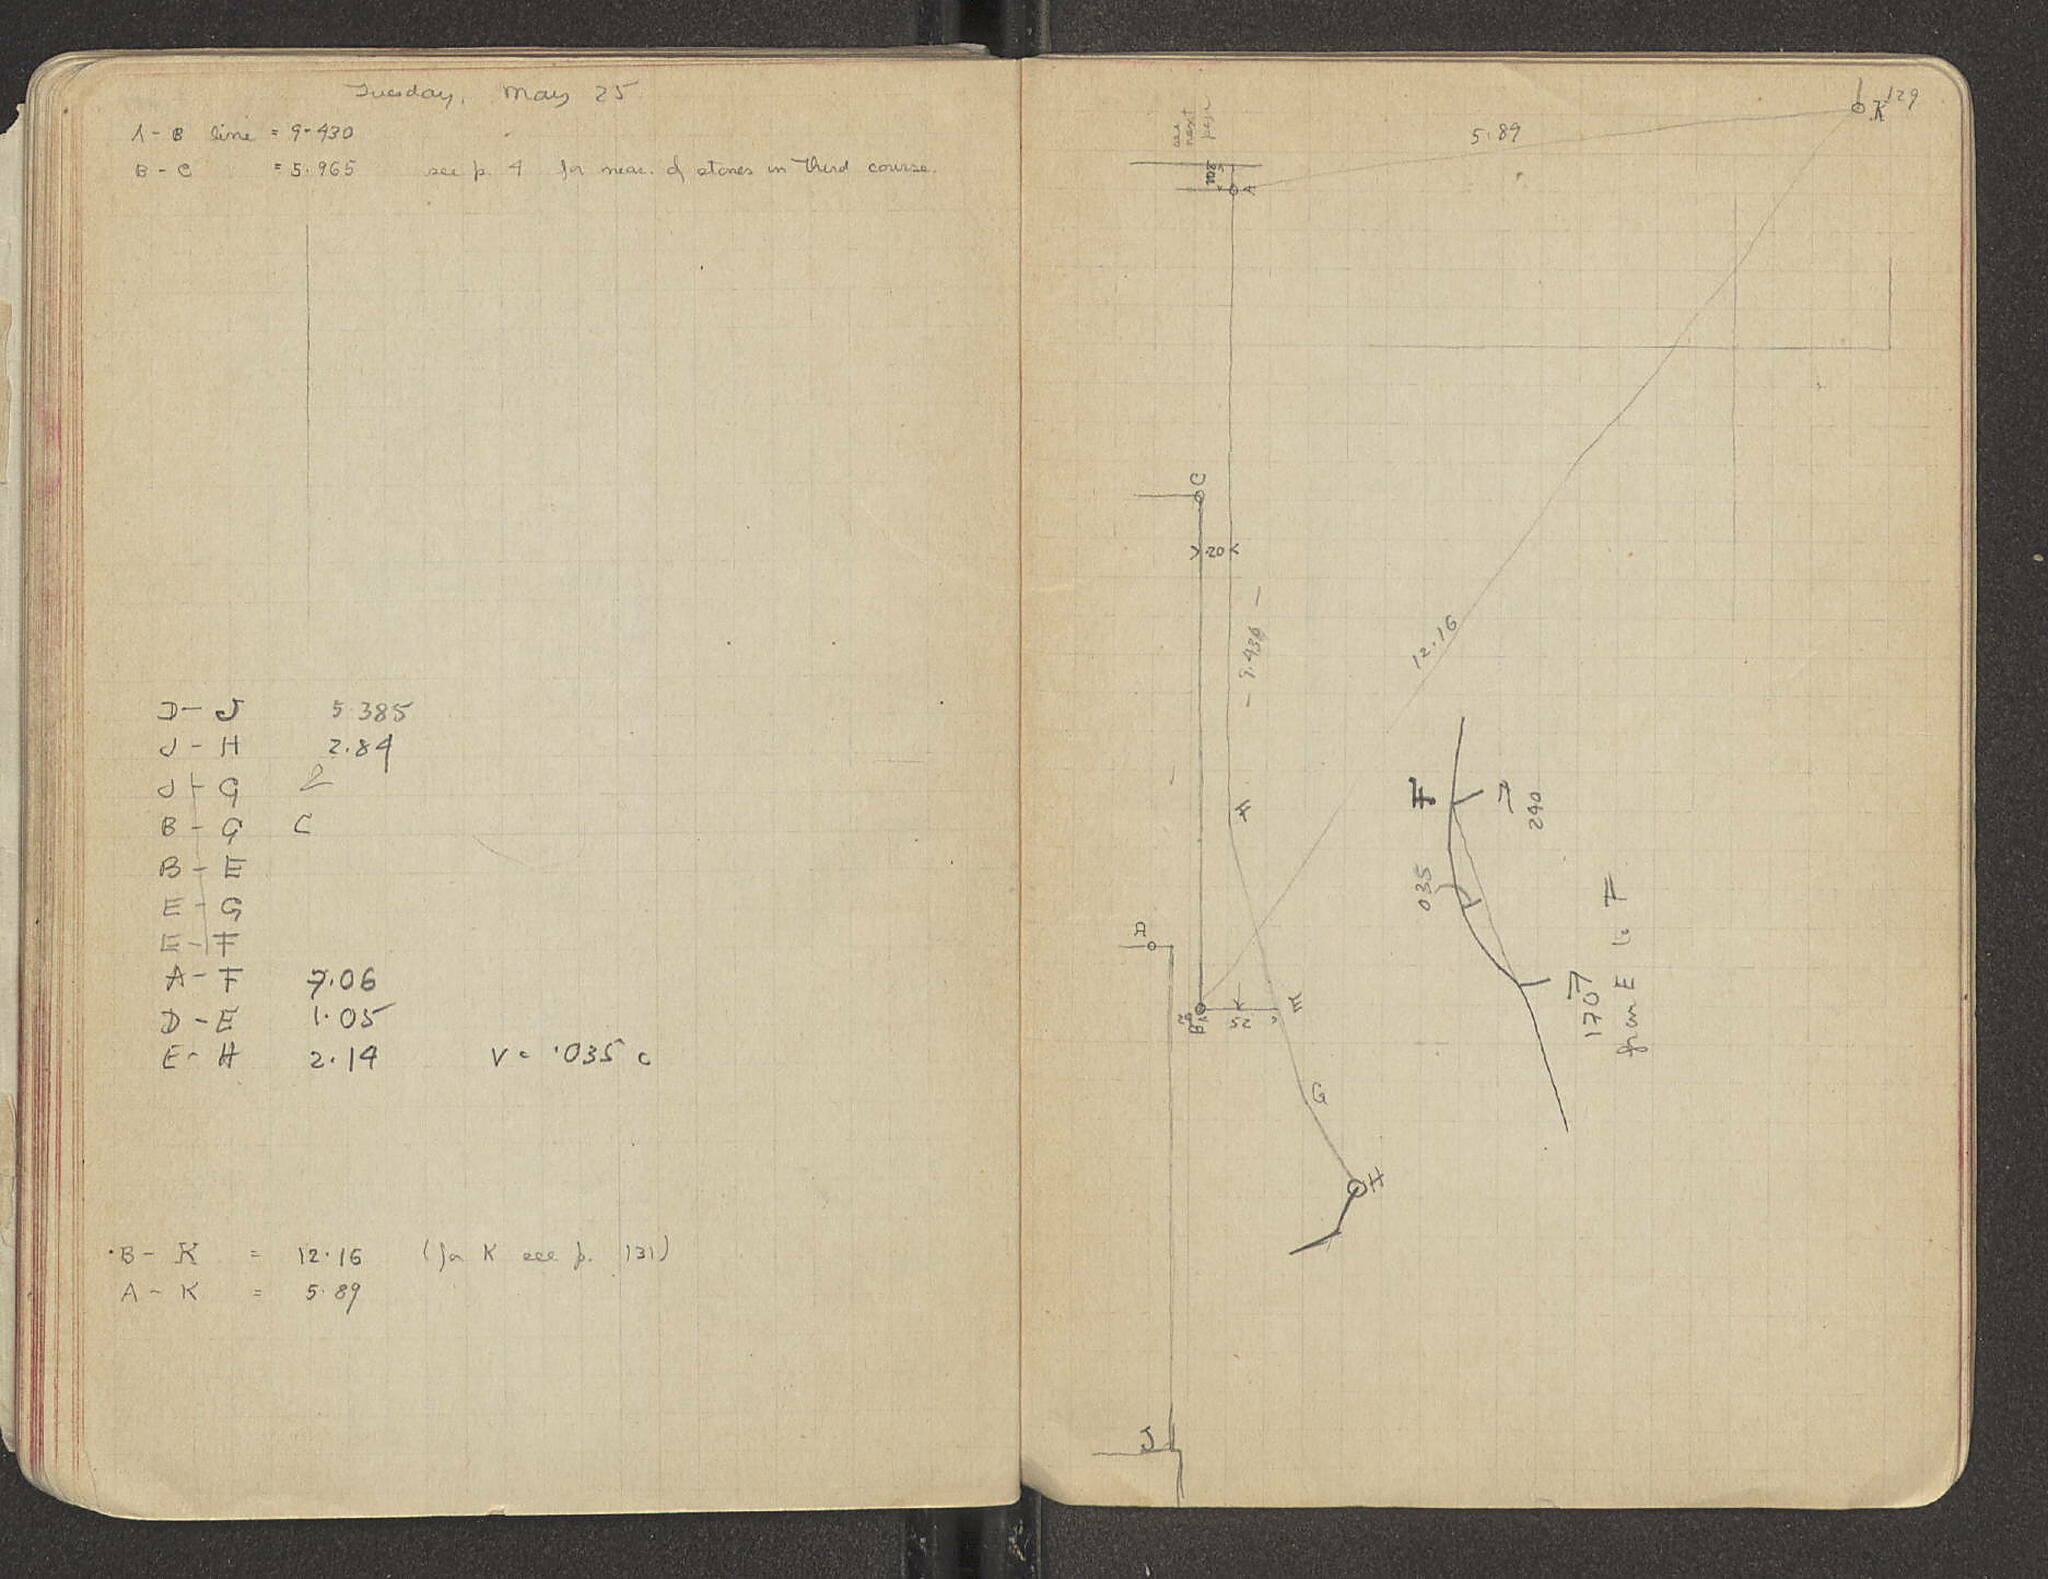 Tuesday, May 25
A - B line = 9.430
B - C = 5.965 see p. 4 for meas. of stones in third course.
D - J 5.385
J - H 2.84
J - G
B - G C
B - E
E - G
E - F
A - F 7.06
D - E 1.05
E - H 2.14 V = .035 c
B - K = 12.16 (for K see p. 131)
A - K = 5.89
129
K
5.89
see next page
A
C
.20
- 9.430 -
12.16
F
F
240
035
from E to F
1707
A
B
52
E
G
H
J